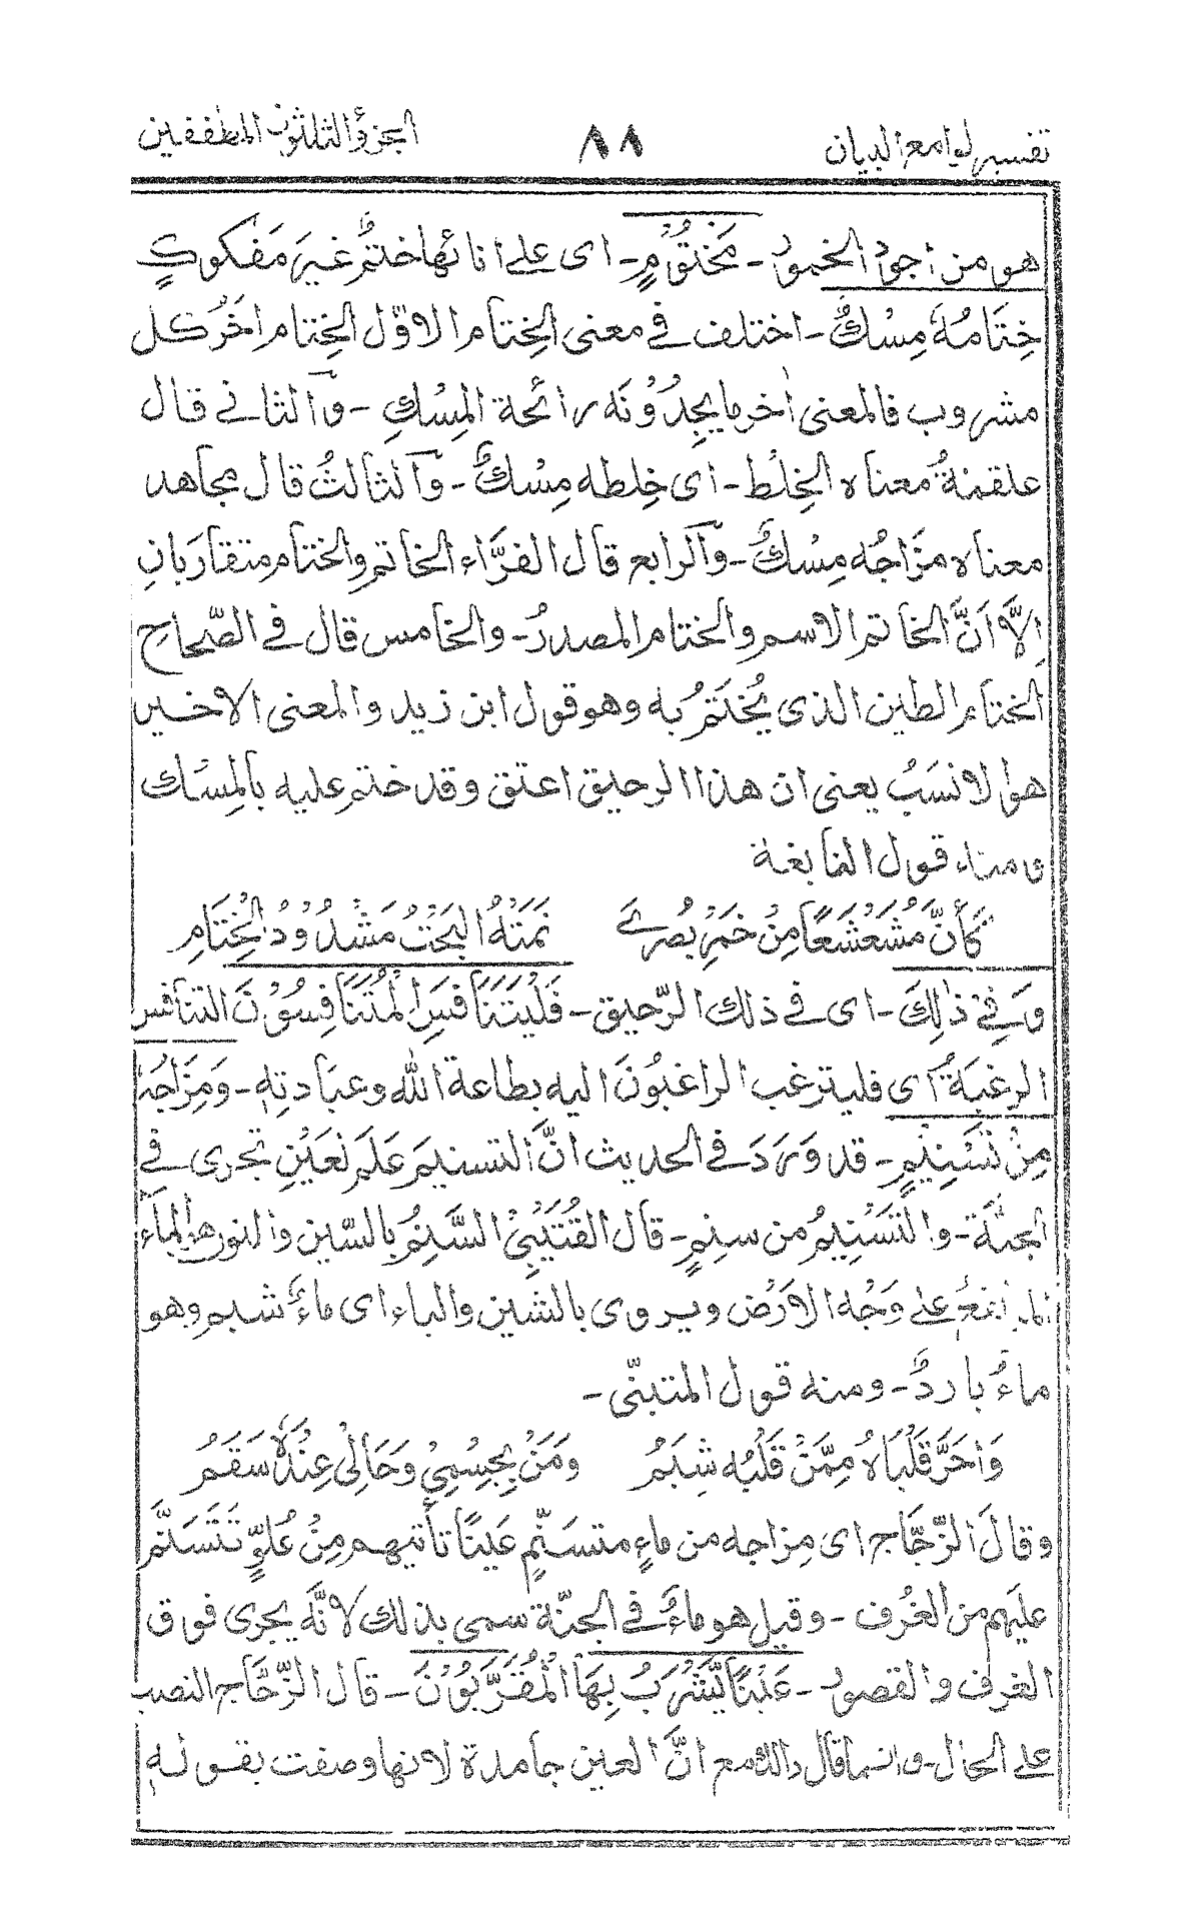 تفسير لوامع البيان ٨٨ الجزؤ الثلثون المطففين
هو من اجود الخمور - مَخْتُوْمٍ - اى على انائها ختمٌ غيرَ مَفكوكٍ
خِتَامُهٗ مِسْكٌ - اختلف فے معنى الخِتام الاوّل الخِتام اٰخَرُ كل
مشروب فالمعنى اٰخر ما يجِدُوْنَه رائحة المِسْكِ - وَالثانے قال
علقمةُ معناه الخِلْط - اى خِلطه مِسْكٌ - وَالثالثُ قال مجاهد
معناه مِزَاجُه مِسْكٌ - وَالرابع قال الفرَّاء الخاتم والختام متقارَبانِ
اِلاَّ اَنَّ الخاتم الاسم والختام المصدرُ - والخامس قال فے الصّحاح
الختام الطين الذى يُختَمُ به وهو قول ابن زيد والمعنى الاخير
هو الانسَبُ يعنى ان هذا الرحيق اعتق وقد ختم عليه بالمِسْك
ومنه قول النابغة
كَأَنَّ مُشَعْشَعًا مِنْ خَمْرِ بُصْرٰے نَمَتْهُ البُخْتُ مَشْدُوْدُ الخِتَامِ
وَفِيْ ذٰلِكَ - اى فے ذلك الرّحيق - فَلْيَتَنَافَسِ الْمُتَنَافِسُوْنَ التنافس
الرغبَةُ اى فليترغب الراغبُوْنَ اليه بطاعة الله وعبادتِه - وَمِزَاجُهٗ
مِنْ تَسْنِيْمٍ - قد وَرَدَ فے الحديث انَّ التسنيمَ عَلَم لعَيْنٍ تجرى فِے
الجنَّة - والتَسْنِيمُ من سنِمٍ - قال القُتَيْبِيُّ السَّنِمُ بالسّين والنون هو الماء
على وَجْه الاَرْض ويروى بالشين والباء اى ماءٌ شبم وهو
ماءٌ باردٌ - ومنه قول المتنبّى -
وَاحَرَّ قَلْبَاهُ مِمَّنْ قَلْبُه شَبَمُ وَمَنْ بِجِسْمِيْ وَحَالِيْ عِنْدَهٗ سَقَمُ
وقالَ الزّجّاج اى مِزاجه من ماءٍ متسَنّمٍ عَينًا تأتيهم مِنْ عُلُوٍّ تَتَسَنَّم
عليهم من الغُرف - وقيل هو ماءٌ فے الجنّة سمى بذلك لانَّه يجرى فوق
الغرف والقصور - عَيْنًا يَّشْرَبُ بِهَا الْمُقَرَّبُوْنَ - قال الزّجّاج النصب
على الحال - وانما قال ذالك مع انَّ العين جامدة لانها وصفت بقوله